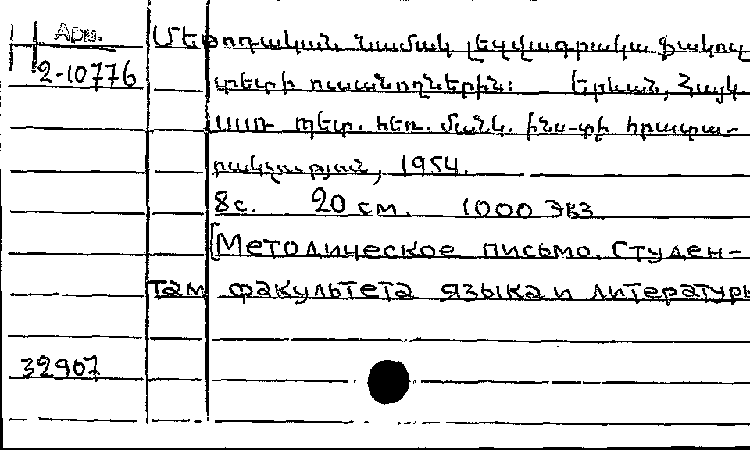 Арм.
2-10776
Մեթոդական նամակ լեզվագրական ֆակուլ
տետի ուսանողներին: Երևան, Հայկ
ՍՍՌ պետ. հեռ. մանկ. ինս-տի հրատա-
րակչություն, 1954.
8с. 20 см. 1000 экз.
[Методическое письмо. Студен-
там факультета языка и литературы
32907